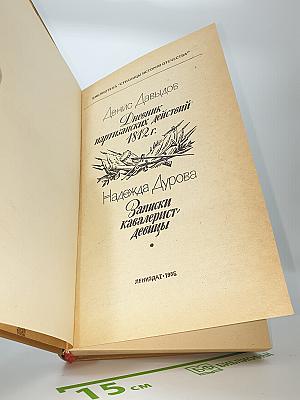 БИБЛИОТЕКА "СТРАНИЦЫ ИСТОРИИ ОТЕЧЕСТВА"
Денис Давыдов
Дневник
партизанских действий
1812 г.
Надежда Дурова
Записки
кавалерист-
девицы
ЛЕНИЗДАТ · 1985
15 см